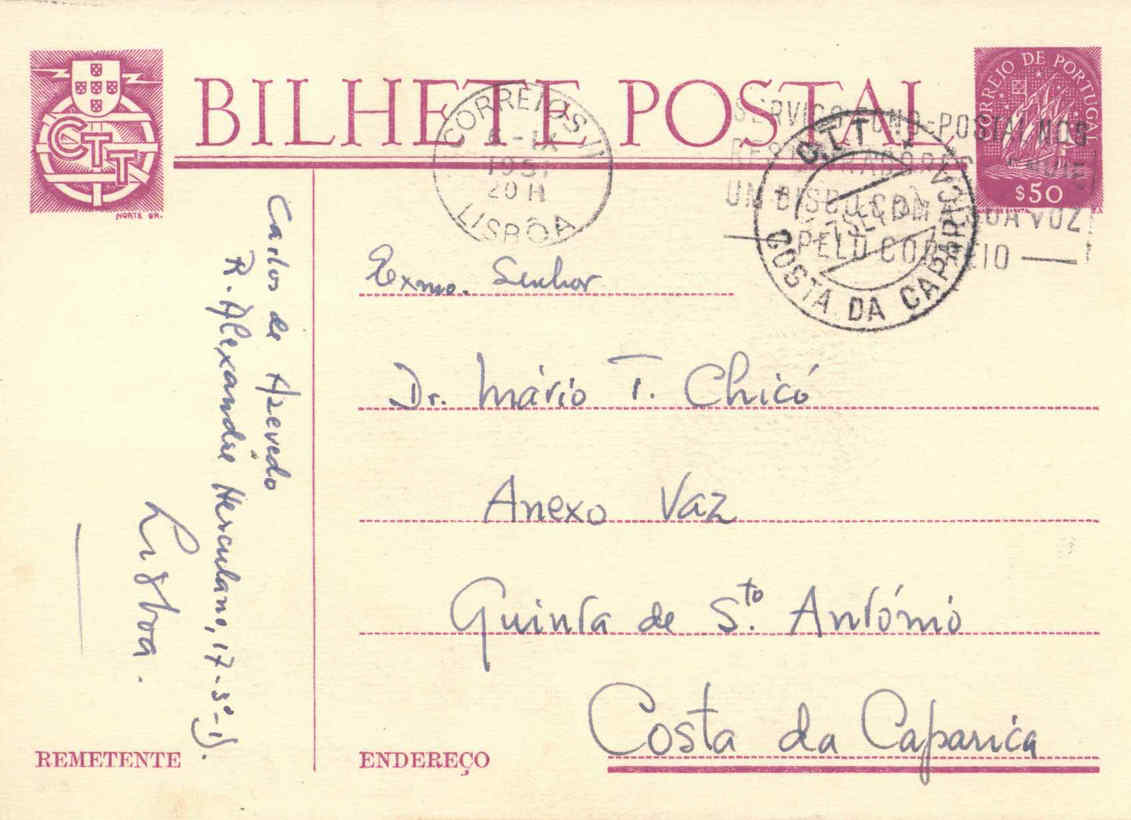 BILHETE POSTAL
CTT
NORTE GR.
CORREIO DE PORTUGAL
$50
CORREIOS
6-IX
1951
20 H
LISBOA
SERVIÇO FONO-POSTAL NOS
UM DISCO COM A SUA VOZ
PELO CORREIO
C.T.T.
COSTA DA CAPARICA
Carlos de Azevedo
R. Alexandre Herculano, 17-3º-
Lisboa.
REMETENTE
Exmo. Senhor
Dr. Mário T. Chicó
Anexo Vaz
Quinta de Sto. António
Costa da Caparica
ENDEREÇO